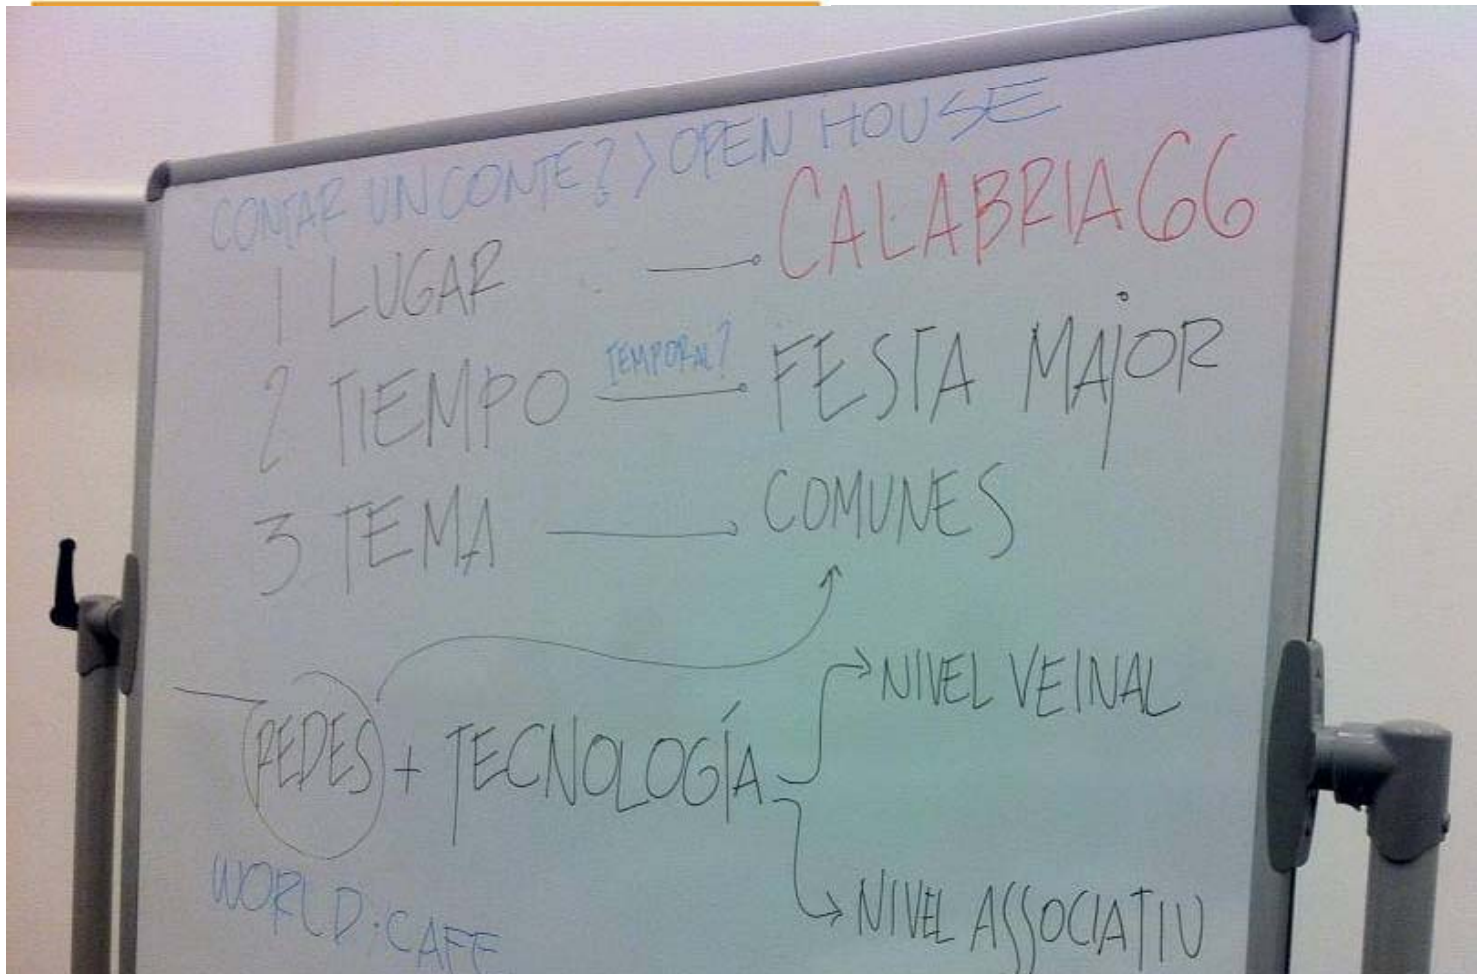 CONTAR UN CONTE? > OPEN HOUSE
1 LUGAR — CALABRIA 66
2 TIEMPO TEMPORAL? FESTA MAJOR
3 TEMA — COMUNES
REDES + TECNOLOGÍA
NIVEL VEINAL
NIVEL ASSOCIATIU
WORLD:CAFE